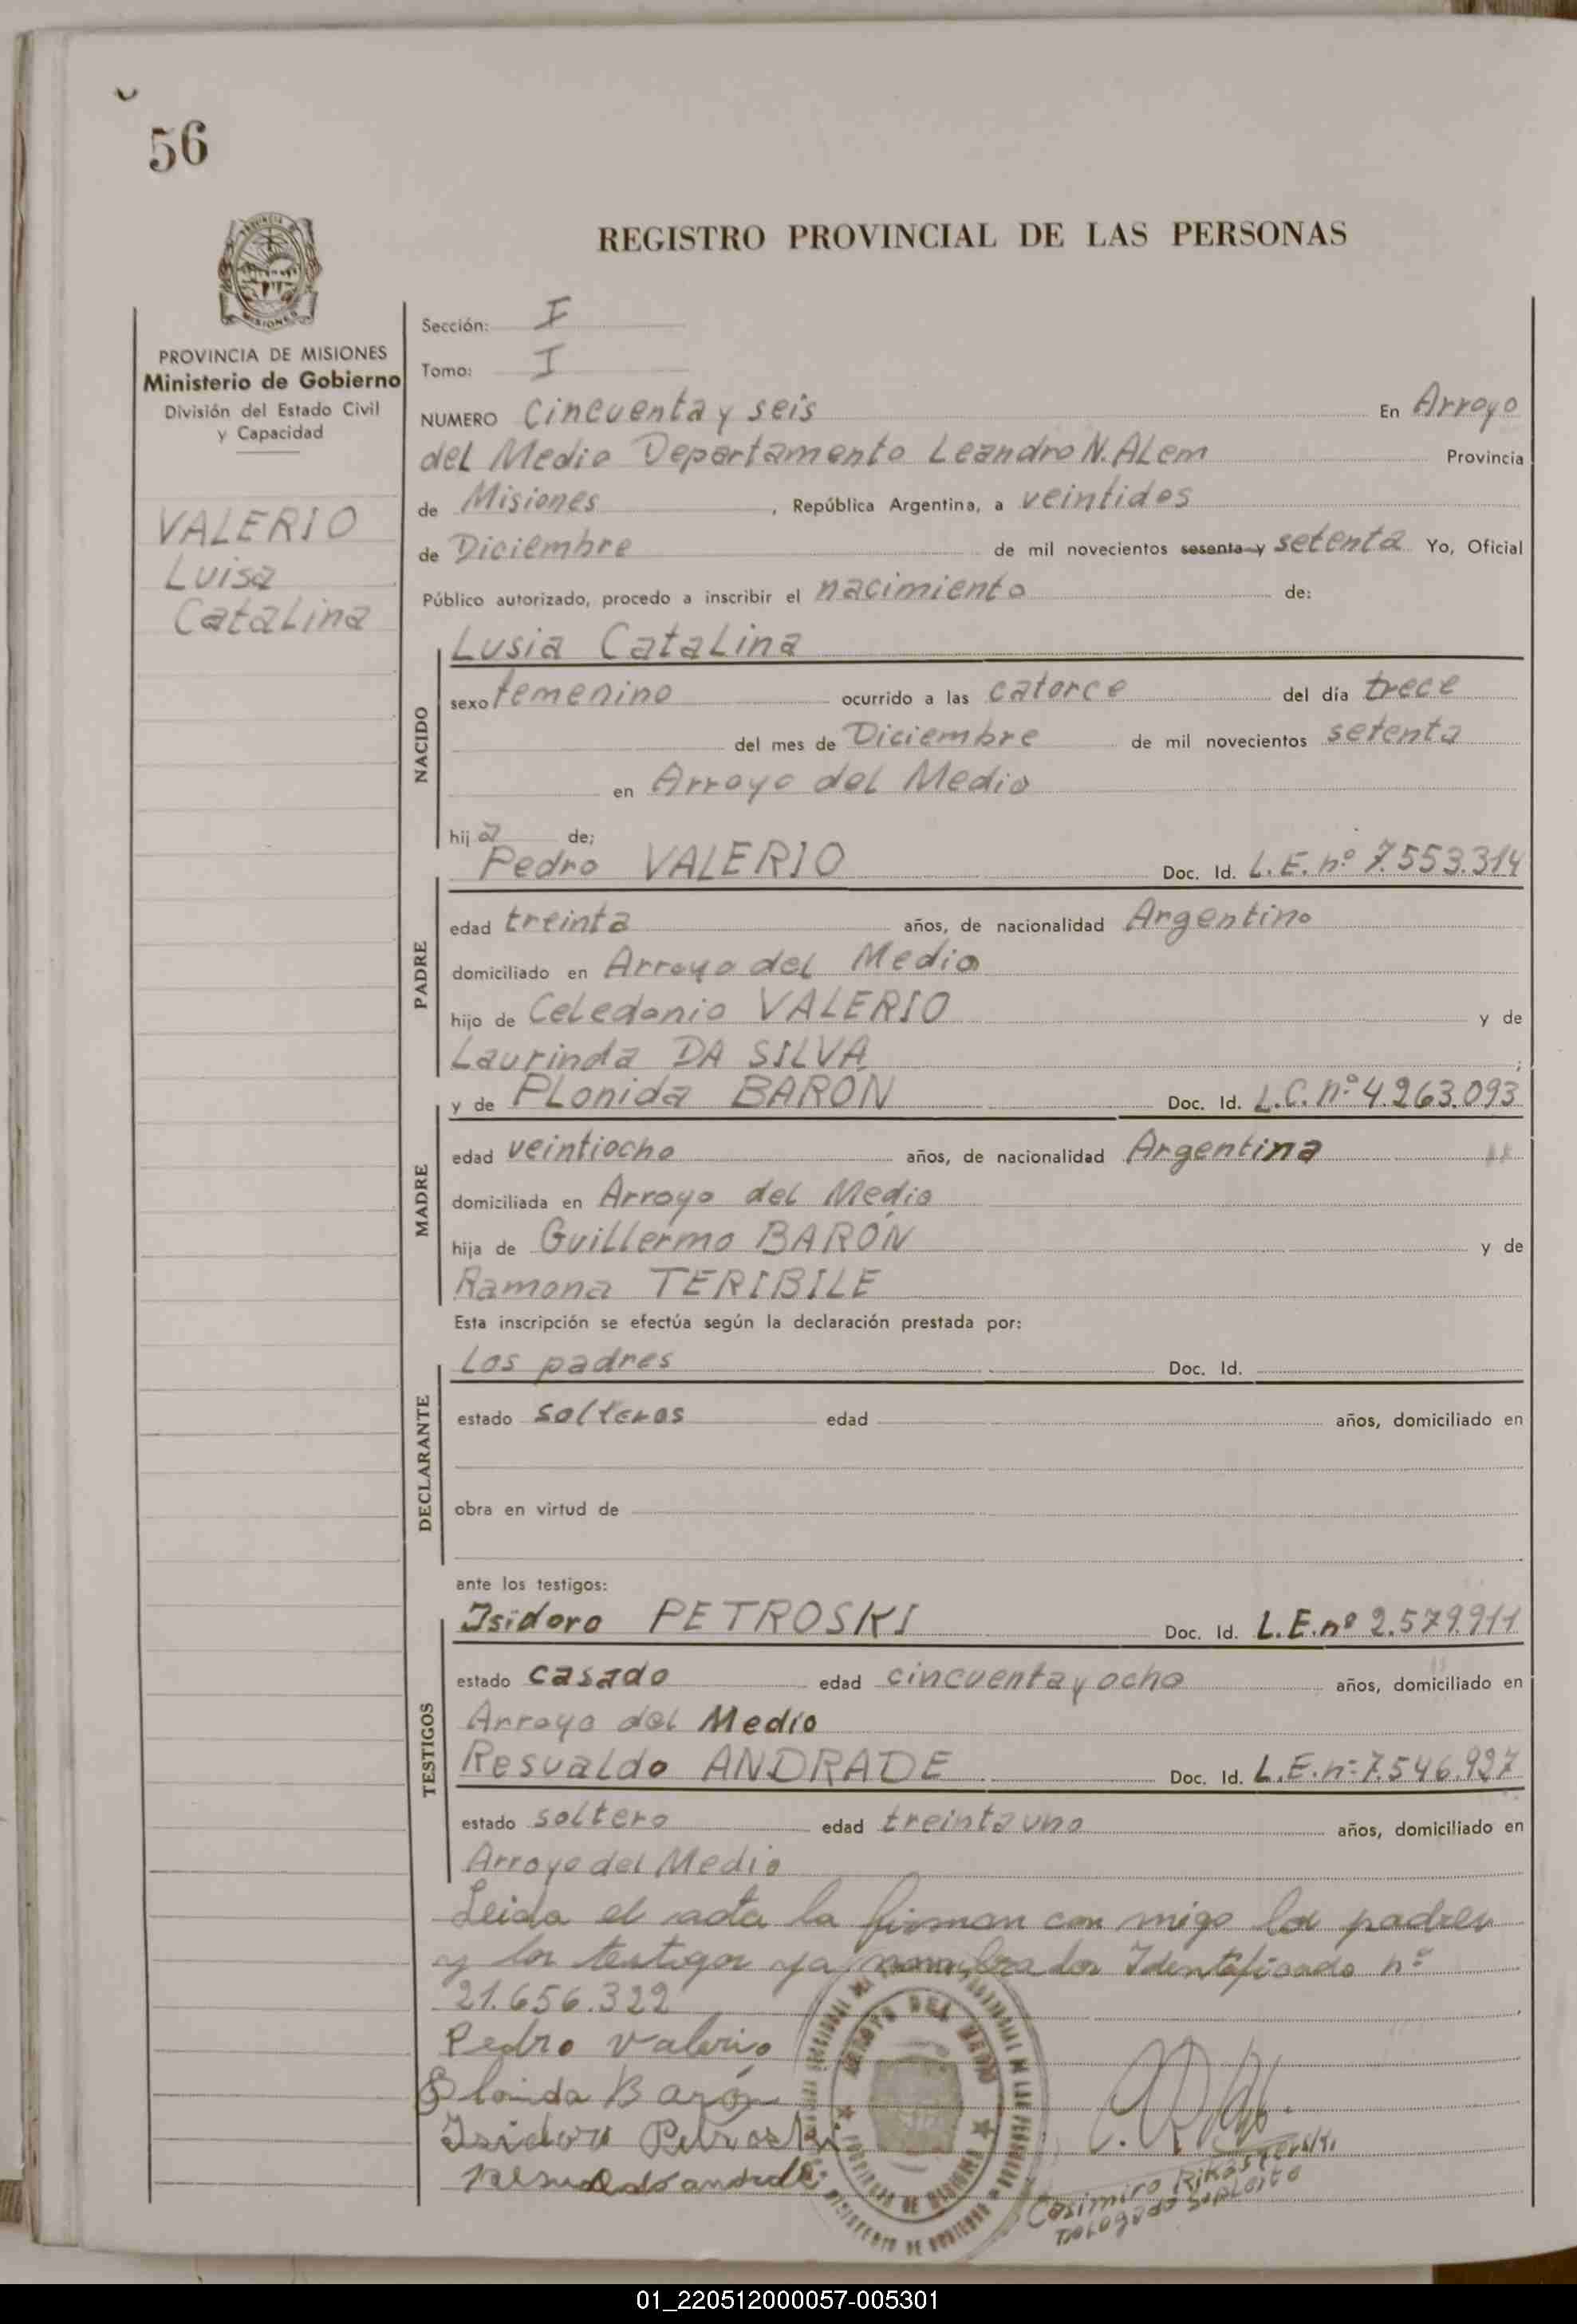 56
REGISTRO PROVINCIAL DE LAS PERSONAS
PROVINCIA DE MISIONES
Ministerio de Gobierno
División del Estado Civil
y Capacidad
VALERIO
Luisa
Catalina
Sección: I
Tomo: I
NUMERO Cincuenta y seis En Arroyo
del Medio Departamento Leandro N. ALem Provincia
de Misiones, República Argentina, a veintidos
de Diciembre de mil novecientos sesenta y setenta Yo, Oficial
Público autorizado, procedo a inscribir el nacimiento de:
Lusia Catalina
NACIDO
sexo femenino ocurrido a las catorce del día trece
del mes de Diciembre de mil novecientos setenta
en Arroyo del Medio
hija de;
Pedro VALERIO Doc. Id. L.E. nº 7.553.314
PADRE
edad treinta años, de nacionalidad Argentino
domiciliado en Arroyo del Medio
hijo de Celedonio VALERIO y de
Laurinda DA SILVA ;
y de PLonida BARÓN Doc. Id. L.C. nº 4.263.093
MADRE
edad veintiocho años, de nacionalidad Argentina
domiciliada en Arroyo del Medio
hija de Guillermo BARÓN y de
Ramona TERIBILE
Esta inscripción se efectúa según la declaración prestada por:
Los padres Doc. Id.
DECLARANTE
estado solteros edad años, domiciliado en
obra en virtud de
ante los testigos:
Isidoro PETROSKI Doc. Id. L.E. nº 2.579.911
TESTIGOS
estado casado edad cincuenta y ocho años, domiciliado en
Arroyo del Medio
Resualdo ANDRADE Doc. Id. L.E. nº 7.546.927
estado soltero edad treinta uno años, domiciliado en
Arroyo del Medio
Leida el acta la firman con migo los padres
y los testigos ya nombrados Identificado nº
21.656.322
Pedro Valerio
Plonida Barón
Isidoro Petroski
Resualdo andrade
Casimiro Rikasterski
Delegado Suplente
01_220512000057-005301